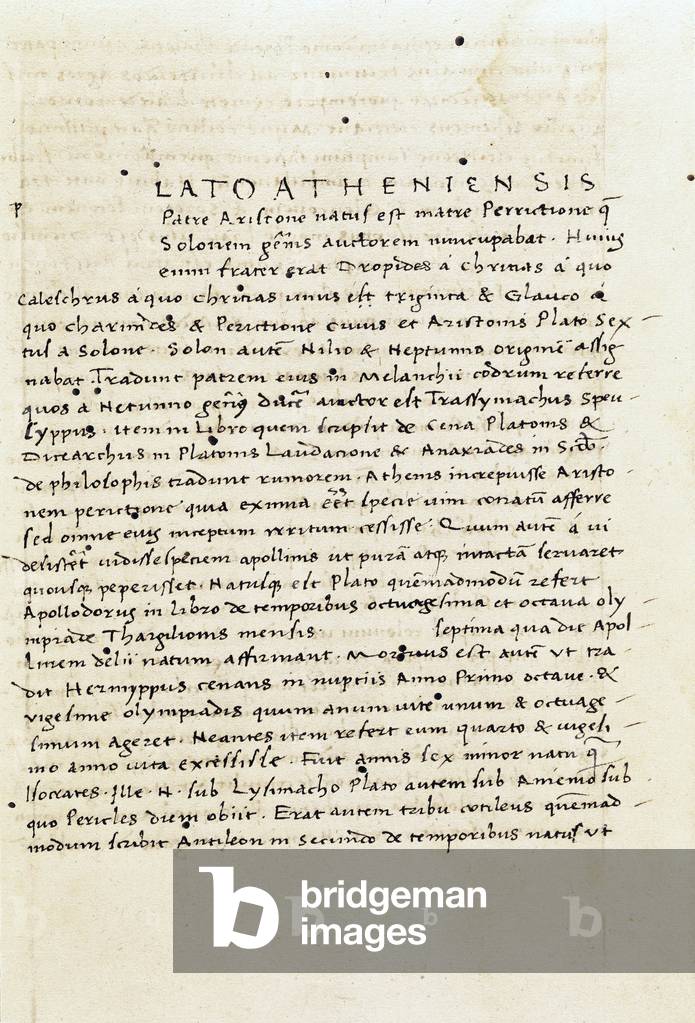 LATO ATHENIENSIS
p
Patre Aristone natus est matre Perictione q̄
Solonem gen̄is auctorem nuncupabat. Huius
enim frater erat Dropides á Christias á quo
Caleschrus á quo Christias unus est triginta & Glauco á
quo charmides & Perictione cuius et Aristonis Plato Sex
tus a Solone. Solon autē Nilio & Neptunno originē assig
nabat. Tradunt patrem eius in Melanchū codrum referre
quos á Netunno gen̄is ducē auctor est Trassymachus Speu
syppus. item in Libro quem scripsit de Cena Platonis &
Dicearchus in Platonis Laudatione & Anaxiades in
de philosophis tradunt rumorem. Athenis increpuisse Aristo
nem perictione quia eximia eēt specie vim conatū afferre
sed omne eius inceptum irritum cessisse. Quum autē á vi
desisteret vidisse speciem apollinis ut purā atq intactā servaret
quousq peperisset. Natusq est Plato quēmadmodū refert
Apollodorus in libro de temporibus octuagesima et octava oly
mpiade Thargilionis mensis septima qua die Apol
linem delii natum affirmant. Mortuus est autē ut tra
dit Hermyppus cenans in nuptiis Anno Primo octave &
vigesime olympiadis quum anum vite unum & octuage
simum ageret. Neantes item refert eum quarto & vigesi
mo anno vita excessisse. Fuit annis sex minor natu q̄
Isocrates. Ille. N. sub Lysimacho Plato autem sub Aniemo sub
quo Pericles diem obiit. Erat autem tribu cotileus quēmad
modum scribit Antileon in secundo de temporibus natus ut
bridgeman
images